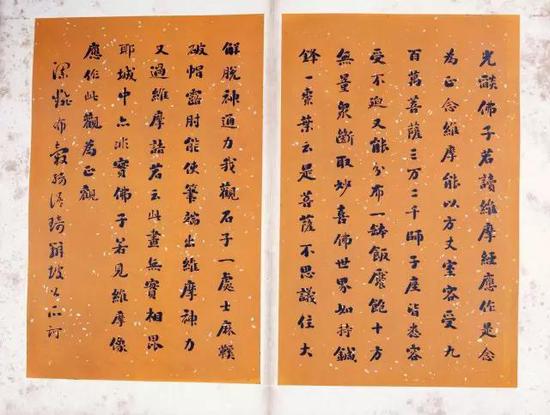 光燄佛子若讀維摩經應作是念
為正念維摩能以方丈室容受九
百萬菩薩三万二千師子座皆悉容
受不迫又能分布一鉢飯饜飽十方
無量衆斷取妙喜佛世界如持鍼
鋒一棗葉云是菩薩不思議住大
解脫神通力我觀石子一處士麻鞵
破帽露肘能使筆端出維摩神力
又過維摩詰若云此畫無實相毘
耶城中亦非實佛子若見維摩像
應作此觀為正觀
布